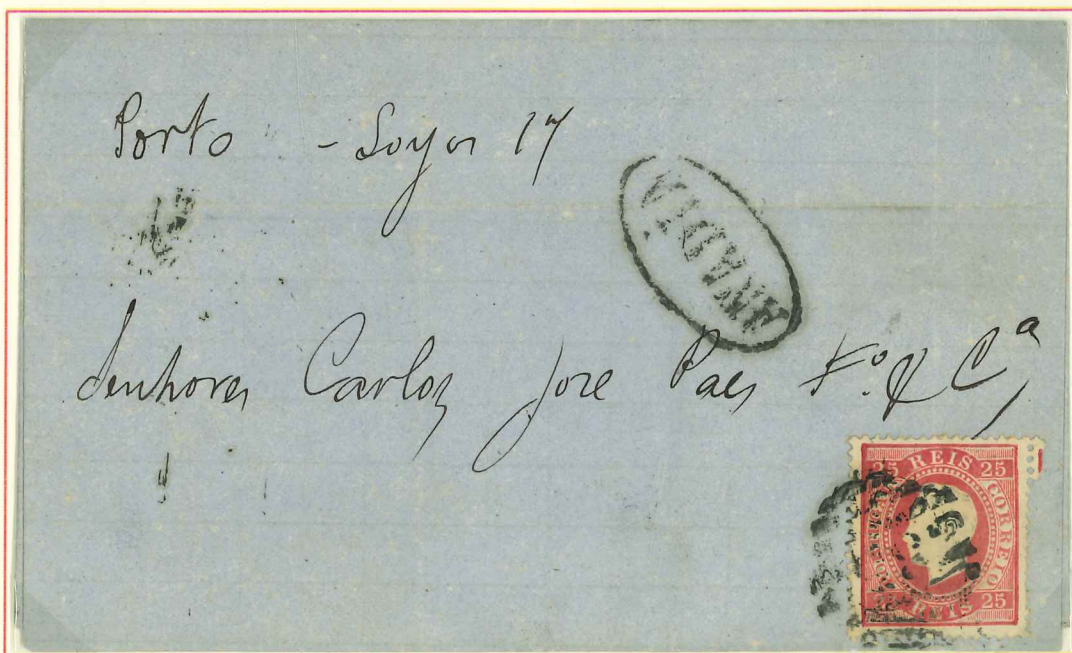 Porto - Loyos 17
ANADIA
Senhores Carlos Jose Paes Fº. & Cª
25 REIS 25
CORREIO
25 REIS 25